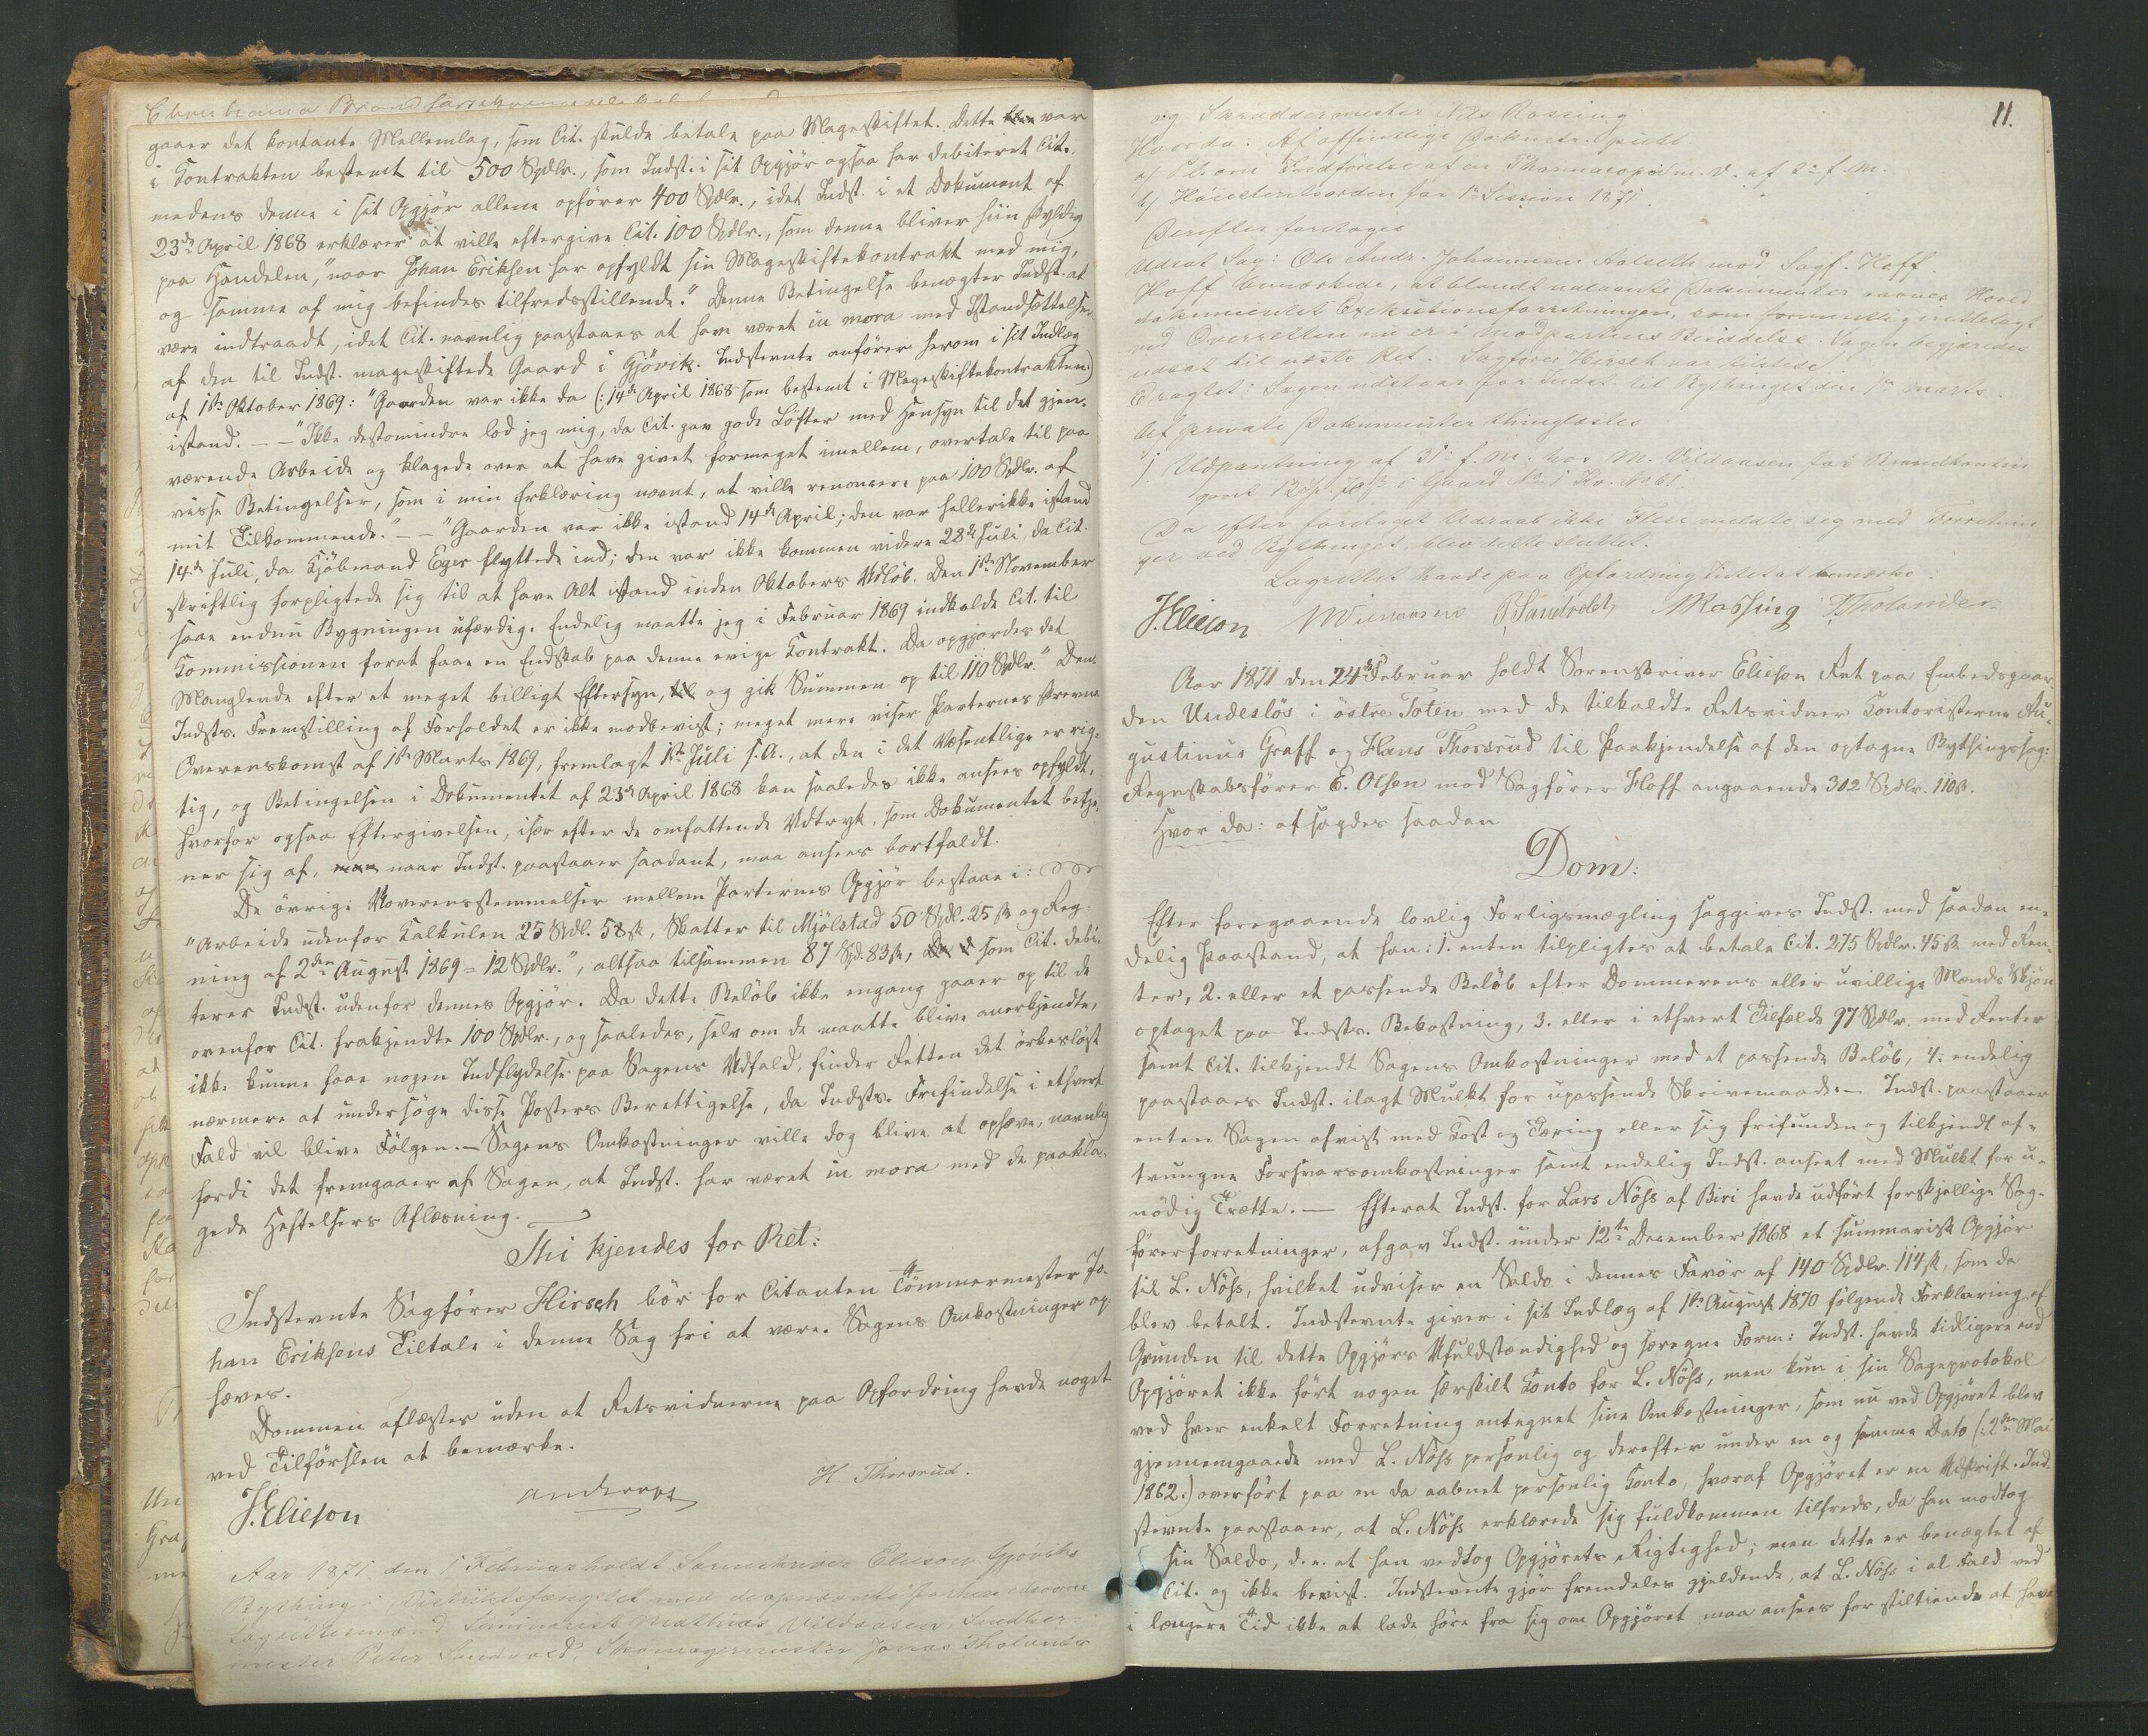 Christiania Brandforsikrings
gaaer det kontante Mellemlag, som Cit. skulde betale paa Mageskiftet. Dette blev var
i Kontrakten bestemt til 500 Spdlr., som Indst. i sit Opgjör ogsaa har debiteret Cit.,
medens denne i sit Opgjör allene opförer 400 Spdlr., idet Indst. i et Dokument af
23de April 1868 erklærer at ville eftergive Cit. 100 Spdlr., som denne bliver hiin skyldig
paa Handelen, "naar Johan Eriksen har opfyldt sin Mageskiftekontrakt med mig,
og samme af mig befindes tilfredsstillende." Denne Betingelse benægter Indst. at
være indtraadt, idet Cit. navnlig paastaaes at have været in mora med Istandsættelsen
af den til Indst. mageskiftede Gaard i Gjövik. Indstevnte anförer herom i sit Indlæg
af 1ste Oktober 1869: "Gaarden var ikke da (: 14de April 1868 som bestemt i Mageskiftekontrakten)
istand. — "Ikke destomindre lod jeg mig, da Cit. gav gode Löfter med Hensyn til det gjen-
værende Arbeide og klagede over at have givet formeget imellem, overtale til paa
visse Betingelser, som i min Erklæring nævnt, at ville renoncere paa 100 Spdlr. af
mit Tilkommende." — "Gaarden var ikke istand 14de April; den var hellerikke istand
14de Juli, da Kjöbmand Eger flyttede ind; den var ikke kommen videre 28de Juli, da Cit.
skriftlig forpligtede sig til at have Alt istand inden Oktobers Udlöb. Den 1ste November
saae endnu Bygningen ufærdig. Endelig maatte jeg i Februar 1869 indkalde Cit. til
Kommissionen forat faae en Endskab paa denne evige Kontrakt. Da opgjordes det
Manglende efter et meget billigt Eftersyn, til og gik Summen op til 110 Spdlr." Den-
Indsts. Fremstilling af Forholdet er ikke modbevist; meget mere viser Parternes skrevne
Overenskomst af 1ste Marts 1869, fremlagt 1ste Juli s. A., at den i det Væsentlige er rig-
tig, og Betingelsen i Dokumentet af 23de April 1868 kan saaledes ikke ansees opfyldt,
hvorfor ogsaa Eftergivelsen, især efter de omfattende Udtryk, som Dokumentet betje-
ner sig af, naar Indst. paastaaer saadant, maa ansees bortfaldt.
De övrige Uoverensstemmelser mellem Parternes Opgjör bestaae i:
"Arbeide udenfor Kalkülen 25 Spdl. 58 s, Skatter til Mjölstad 50 Spdl. 25 s og Reg-
ning af 2den August 1869 = 12 Spdlr.", altsaa tilsammen 87 Spd. 83 s, som Cit. debi-
terer Indst. udenfor dennes Opgjör. Da dette Belöb ikke engang gaaer op til de
ovenfor Cit. frakjendte 100 Spdlr., og saaledes, selv om de maatte blive anerkjendte,
ikke kunne faae nogen Indflydelse paa Sagens Udfald, finder Retten det örkeslöst
nærmere at undersöge disse Posters Berettigelse, da Indsts. Frifindelse i ethvert
Fald vil blive Fölgen. — Sagens Omkostninger ville dog blive at ophæve, navnlig
fordi det fremgaaer af Sagen, at Indst. har været in mora med de paakla-
gede Heftelsers Aflæsning.
Thi kjendes for Ret:
Indstevnte Sagförer Hirsch bör for Citanten Tömmermester Jo-
han Eriksens Tiltale i denne Sag fri at være. Sagens Omkostninger op-
hæves.
Dommen aflæstes uden at Retsvidnerne paa Opfordring havde noget
ved Tilförslen at bemærke.
J. Elieson
H. Thorsrud.
Aar 1871 den 1 Februar holdt Sorenskriver Elieson Gjöviks
Bything i Distriktsfængslet med de opnævnte
Lagrettesmænd Seminarist Mathias Vildaasen,
mester Peter Sandvold, Skomagermester Jonas Tholander
11.
og Skræddermester Nils Rossing
Hvorda: Af offentlige Dokumtr. publ.
a) Pl. om Indförelse af en Pharmacopö m. v. af 2 f. M.
b) Höiesteretsorden for 1ste Session 1871.
Derefter foretoges
Udsat Sag: Ole Andr. Johannesen Aalseth mod Sagf. Hoff.
Hoff bemærkede, at blandt udeværte Dokumenter savnes Hoved
dokumentet Exekutionsforretningen, som formentlig
ved Overretten nu er i Modpartens Besiddelse. Sagen begjæredes
udsat til næste Ret. Sagförer Hirsch var tilstede.
Eragtet: Sagen udstaar for Indst. til Bythinget den 1ste Marts.
Af private Dokumenter thinglæstes
1. Udpantning af 31 f. M. hos M. Vildaasen for Brandkontin
gent 1 Sp. i Gaard No 1 Kv. No 61.
Da efter foretaget Udraab ikke Flere meldte sig med Forretnin
ger ved Bythinget, blev dette sluttet.
Lagrettet havde paa Opfordring Intet at bemærke.
J. Elieson M Vildaasen P. Sandvold N Rossing J. Tholander
Aar 1871 den 24de Februar holdt Sorenskriver Elieson Ret paa Embedsgaar-
den Undeslös i östre Toten med de tilkaldte Retsvidner Kontoristerne Au-
gustinus Graff og Hans Thorsrud til Paakjendelse af den optagne Bythingssag:
Regnskabsförer E. Olsen mod Sagförer Hoff angaaende 302 Spdlr. 110 s.
Hvor da: afsagdes saadan
Dom:
Efter foregaaende lovlig Forligsmægling saggives Indst. med saadan en-
delig Paastand, at han: 1. enten tilpligtes at betale Cit. 275 Spdlr. 45 s med Ren-
ter, 2. eller et passende Belöb efter Dommerens eller uvillige Mænds Skjön
optaget paa Indsts. Bekostning, 3. eller i ethvert Tilfælde 97 Spdlr. med Renter
samt Cit. tilkjendt Sagens Omkostninger med et passende Belöb, 4. endelig
paastaaes Indst. ilagt Mulkt for upassende Skrivemaade. — Indst. paastaaer
enten Sagen afvist med Kost og Tæring eller sig frifunden og tilkjendt af-
tvungne Forsvarsomkostninger samt endelig Indst. anseet med Mulkt for u-
nödig Trætte. — Efterat Indst. for Lars Nöss af Biri havde udfört forskjellige Sag-
förerforretninger, afgav Indst. under 12te December 1868 et summarisk Opgjör
til L. Nöss, hvilket udviser en Saldo i dennes Favör af 140 Spdlr. 114 s, som da
blev betalt. Indstevnte giver i sit Indlæg af 1ste August 1870 fölgende Forklaring af
Grunden til dette Opgjörs Ufuldstændighed og særegne Form: Indst. havde tidligere end
Opgjöret ikke fört nogen særskilt Konto for L. Nöss, men kun i sin Sageprotokol
ved hver enkelt Forretning antegnet sine Omkostninger, som nu ved Opgjöret blev
gjennemgaaede med L. Nöss personlig og derefter under en og samme Dato (: 2den Mai
1862.) overfört paa en da aabnet personlig Konto, hvoraf Opgjöret er en Udskrift. Ind-
stevnte paastaaer, at L. Nöss erklærede sig fuldkommen tilfreds, da han modtog
sin Saldo, d. e. at han vedtog Opgjörets Rigtighed; men dette er benægtet af
Cit. og ikke bevist. Indstevnte gjör fremdeles gjeldende, at L. Nöss i al Fald ved
i længere Tid ikke at lade höre fra sig om Opgjöret maa ansees for stiltiende at have